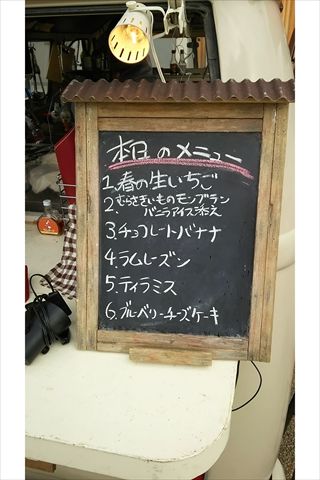 本日のメニュー
1.春の生いちご
2.むらさきいものモンブラン
バニラアイス添え
3.チョコレートバナナ
4.ラムレーズン
5.ティラミス
6.ブルーベリーチーズケーキ